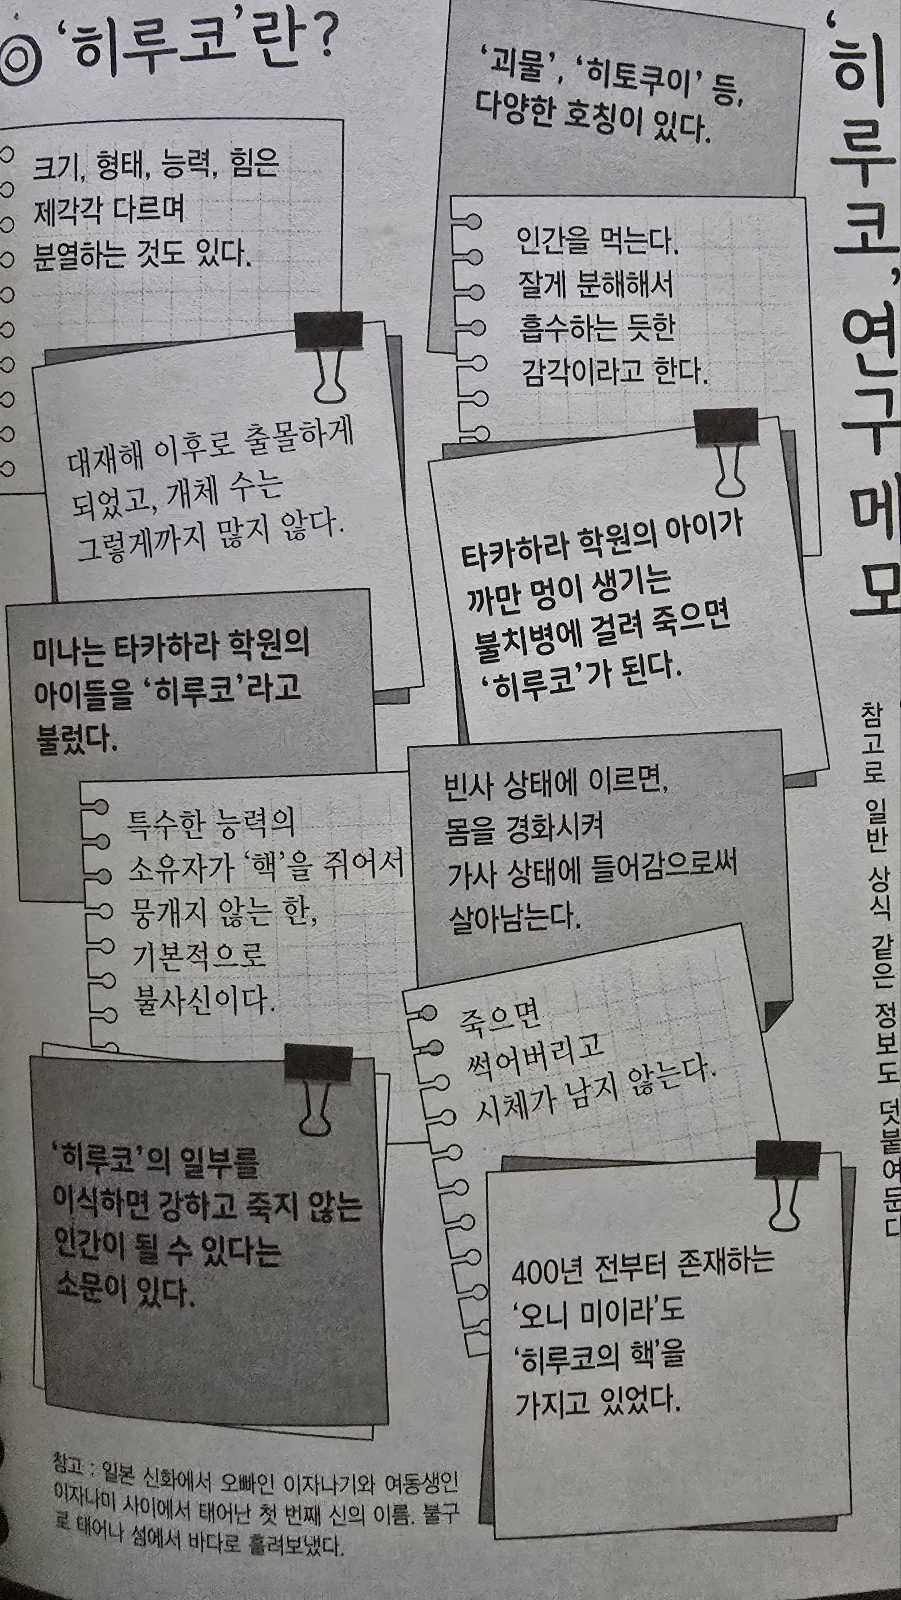 ◎ ‘히루코’란?
‘히루코’ 연구 메모
참고로 일반 상식 같은 정보도 덧붙여 둔다
‘괴물’, ‘히토쿠이’ 등,
다양한 호칭이 있다.
인간을 먹는다.
잘게 분해해서
흡수하는 듯한
감각이라고 한다.
타카하라 학원의 아이가
까만 멍이 생기는
불치병에 걸려 죽으면
‘히루코’가 된다.
빈사 상태에 이르면,
몸을 경화시켜
가사 상태에 들어감으로써
살아남는다.
죽으면
썩어버리고
시체가 남지 않는다.
400년 전부터 존재하는
‘오니 미이라’도
‘히루코의 핵’을
가지고 있었다.
크기, 형태, 능력, 힘은
제각각 다르며
분열하는 것도 있다.
대재해 이후로 출몰하게
되었고, 개체 수는
그렇게까지 많지 않다.
미나는 타카하라 학원의
아이들을 ‘히루코’라고
불렀다.
특수한 능력의
소유자가 ‘핵’을 쥐어서
뭉개지 않는 한,
기본적으로
불사신이다.
‘히루코’의 일부를
이식하면 강하고 죽지 않는
인간이 될 수 있다는
소문이 있다.
참고 : 일본 신화에서 오빠인 이자나기와 여동생인
이자나미 사이에서 태어난 첫 번째 신의 이름. 불구
로 태어나 섬에서 바다로 흘려보냈다.